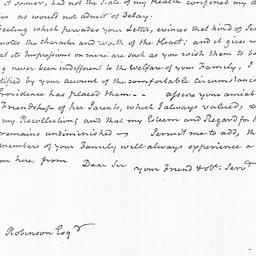 it sooner, had not the State of my Health confined my a
as would not admit of Delay.
Feeling which pervades your Letter, evinces that kind of Sen
notes the character and worth of the Heart; and it gives m
at its Impressions on more are such as you wish them to b
never been indifferent to the welfare of your Family, I
tified by your account of the comfortable circumstance
Providence has placed them — assure your amiab
Friendship of her Parents, which I always valued,
my Recollection; and that my Esteem and Regard for h
remains undiminished — Permit me to add, th
members of your Family will always experience a
on here, from Dear Sir your Friend & ob. Servt.
Robinson Esqr